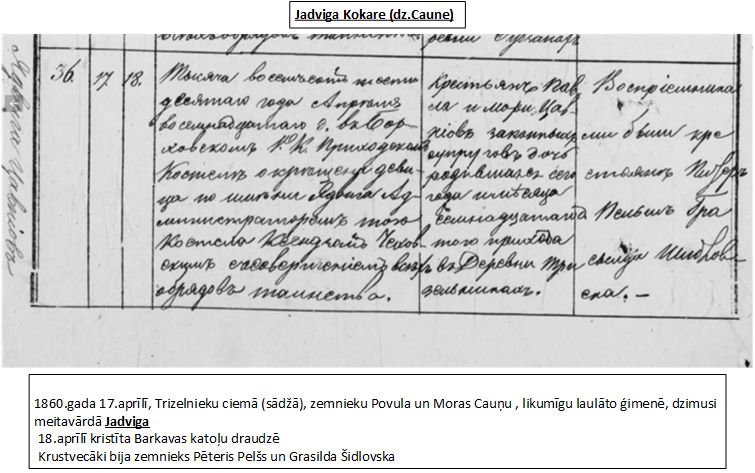 Jadviga Kokare (dz.Caune)
36.
17.
18.
Тысяча восемьсотъ шести
десятаго года Апрѣля
восемнадцатаго д. въ Бор-
ховскомъ Р. К. Приходскомъ
Костелѣ окрещена дѣви-
ца по имени Ядвига Ад-
министраторомъ того
Костела Ксендзомъ Чехов-
скимъ съ совершеніемъ всѣхъ
обрядовъ таинства. 
Крестьянъ Пав-
ла и Моры Цав-
законныхъ
супруговъ дочь
родившаяся сего
года и мѣсяца
семнадцатаго
того прихода
въ Деревни Три
зельникахъ.
Воспріемника
ми были кре
стьянинъ Питеръ
Пельшъ Гра
сильда Шидловс
ска. —
1860.gada 17.aprīlī, Trizelnieku ciemā (sādžā), zemnieku Povula un Moras Cauņu , likumīgu laulāto ģimenē, dzimusi
meitavārdā Jadvirga
18.aprīlī kristīta Barkavas katoļu draudzē
Krustvecāki bija zemnieks Pēteris Pelšs un Grasilda Šidlovska